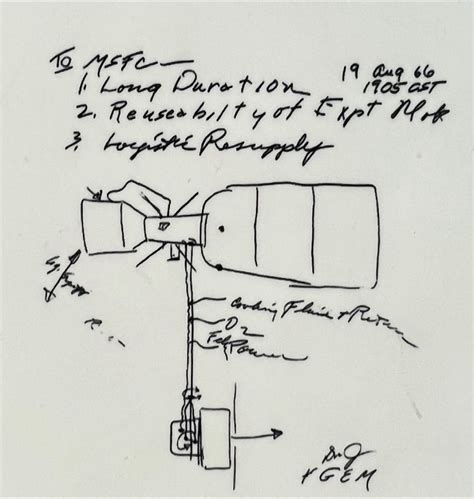 To MSFC
19 Aug 66
1905 CST
1. Long Duration
2. Reuseability of Expt Mod
3. Logistic Resupply
Cooling Fluid & Return
O2
Power
& GEM